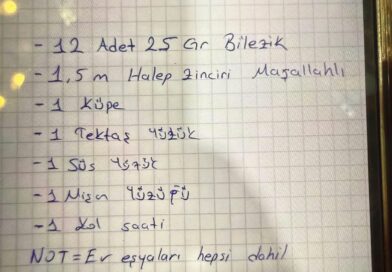 - 12 Adet 25 Gr Bilezik
- 1,5 m Halep Zinciri Maşallahlı
- 1 Küpe
- 1 Tektaş Yüzük
- 1 Süs Yüzük
- 1 Nişan Yüzüğü
- 1 Kol saati
NOT = Ev eşyaları hepsi dahil